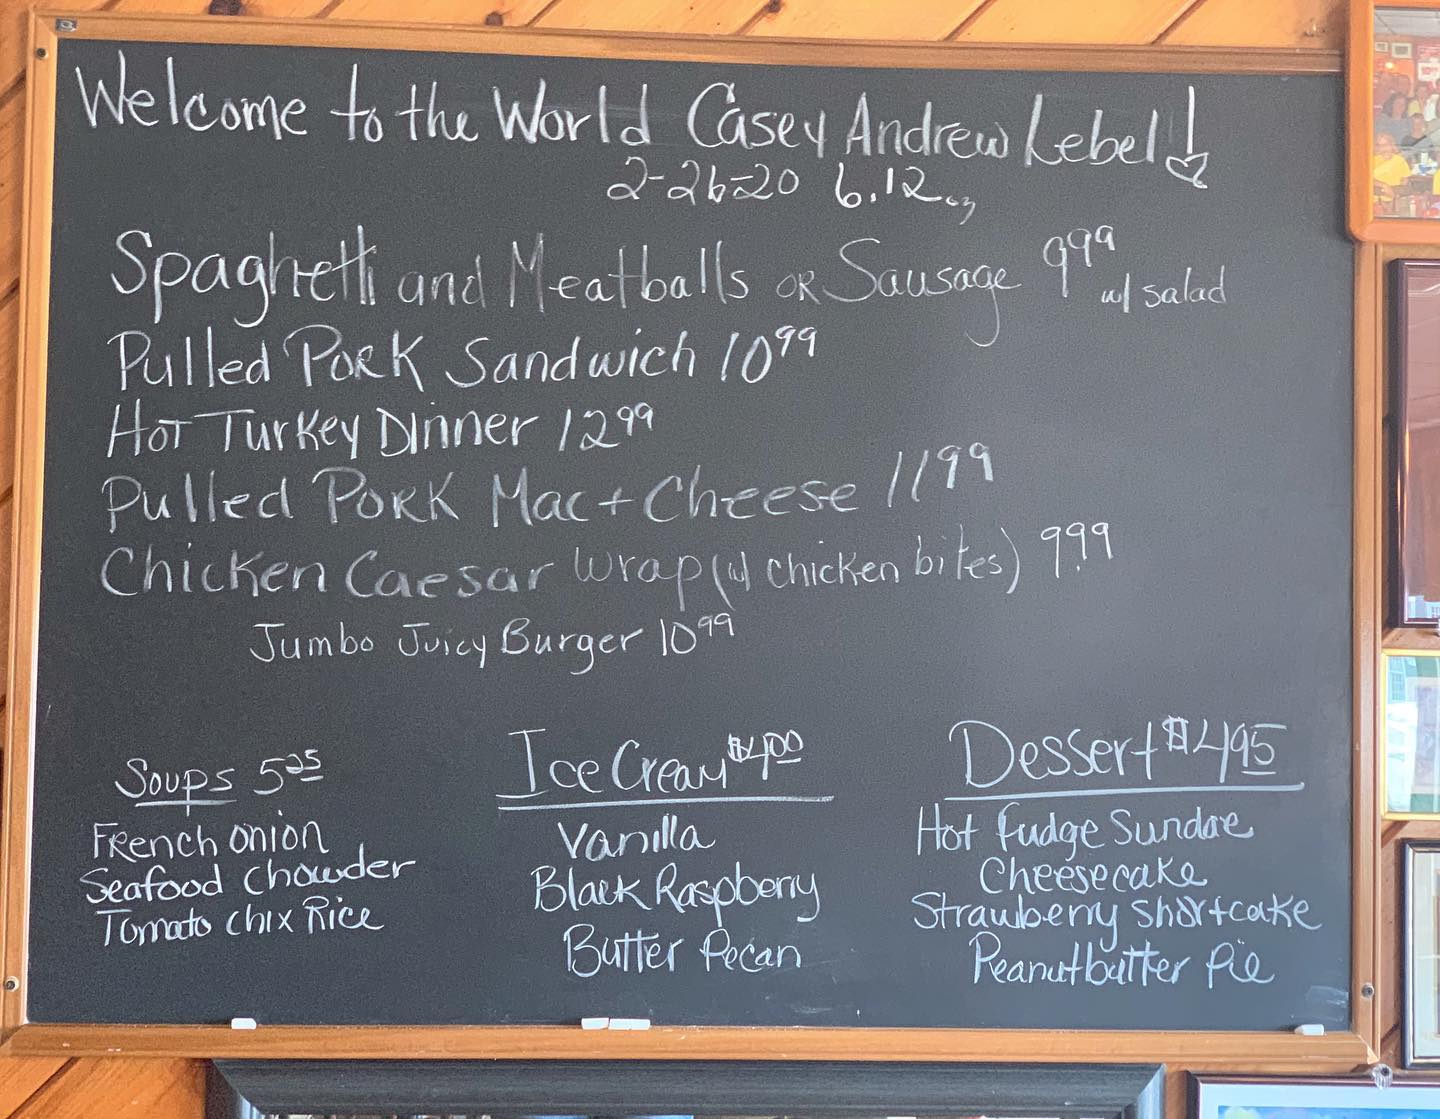 Welcome to the World Casey Andrew Lebel!
2-26-20 6.12 oz
Spaghetti and Meatballs OR Sausage 9.99 w/ salad
Pulled Pork Sandwich 10 99
Hot Turkey Dinner 12 99
Pulled Pork Mac + Cheese 11 99
Chicken Caesar Wrap (w/ chicken bites) 9.99
Jumbo Juicy Burger 10 99
Soups 5 25
French onion
Seafood Chowder
Tomato chix Rice
Ice Cream $4.00
Vanilla
Black Raspberry
Butter Pecan
Dessert $4.95
Hot fudge Sundae
Cheesecake
Strawberry shortcake
Peanutbutter Pie